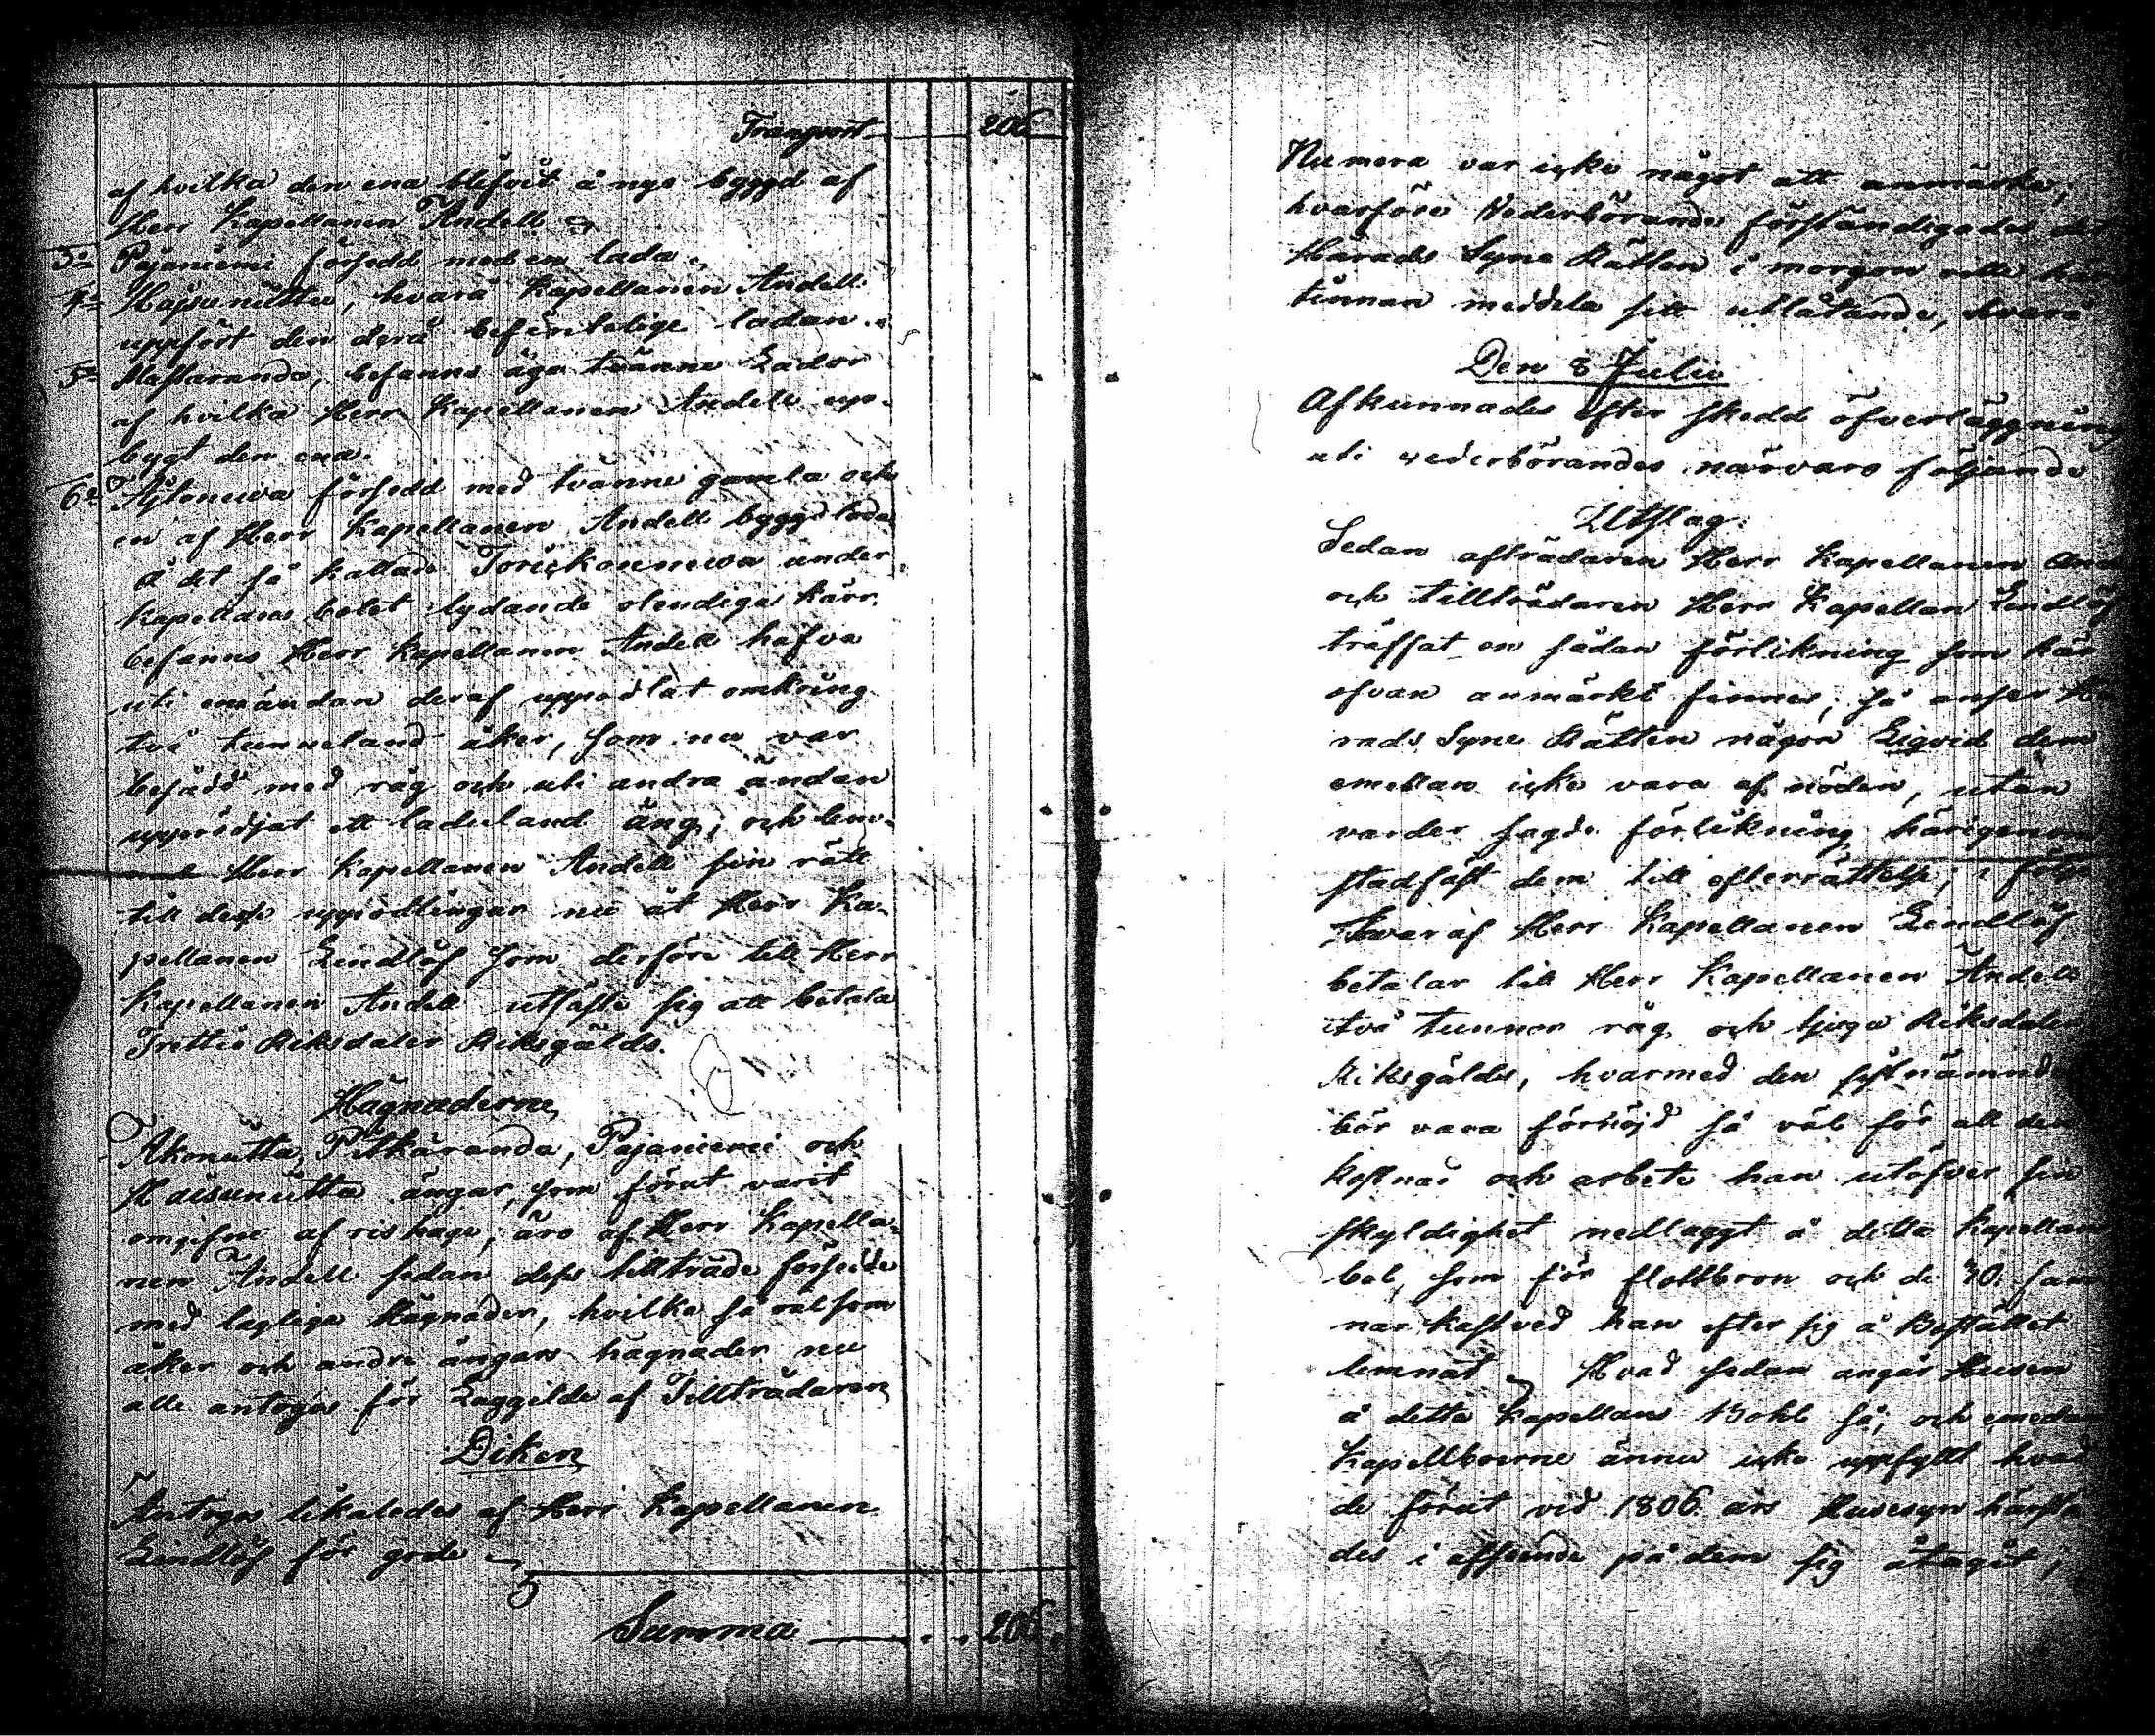 Transport 206
af hvilka den ena blifvit å nyo byggd af
Herr Kapellanen Andell
3o Pajaniemi försedd med en lada
4o Hajsunütta, hvarå Kapellanen Andell
uppfört den derå befintelige ladan.
5o befanns äga tvänne Lador
af hvilka Herr Kapellanen Andell upp-
bygt den ena.
6o försedd med tvänne gamla och
en af Herr Kapellanen Andell byggd lada
å det så kallade under
Kapellans bolet lydande olendiga kärr,
befanns Herr Kapellanen Andell hafva
uti enändan deraf uppodlat omkring
två tunneland åker, som nu var
besådd med råg och uti andra ändan
upprödjat ett ladeland äng; och lem-
nade Herr Kapellanen Andell sin rätt
till dessa uppodlingar nu åt Herr Ka-
pellanen Lindlöf som derföre till Herr
Kapellanen Andell utfäste sig att betala
Trettio Riksdaler Riksgälds.
Hägnaderne
Akonütta, Pitkäranda, Pajaniemi och
Haisunütta ängar, som förut varit
omgifne af rishage, äro af Herr Kapella-
nen Andell sedan dess tillträde försedde
med laglige Hägnader, hvilka så väl som
åker och andre ängars hägnader nu
alle antogos för Laggilde af Tillträdaren
Diken
Antogos likaledes af Herr Kapellanen
Lindlöf för gode
Summa 206
Numera var icke något att anmärka,
hvarföre Vederbörande förständigades att
Härads Syne Rätten i morgon ville
timman meddela sitt utlåtande, hvarå
Den 8 Julii
Afkunnades efter skedd öfverläggning
uti vederbörandes närvaro följande
Utslag:
Sedan afträdaren Herr Kapellanen
och tillträdaren Herr Kapellan Lindlöf
träffat en sådan förlikning som här
ofvan anmärkt finnes; så anser Hä
rads Syne Rätten någon Liqvid dem
emellan icke vara af nöden, utan
varder sagde förlikning härigenom
stadfäst dem till efterrättelse; i följe
hvaraf Herr Kapellanen Lindlöf
betalar till Herr Kapellanen Andell
två tunnor råg och tjugu Riksdaler
Riksgälds, hvarmed den sistnämnde
bör vara förnöjd så väl för all den
kostnad och arbete han utöfver sin
skyldighet nedlaggt å detta Kapellans
bol, som för flottbron och de 70
nar kastved han efter sig å Bostället
lemnat Hvad sedan angår Husen
å detta Kapellans Bohl så, och emedan
Kapellboerne ännu icke uppfyllt hvad
de förut vid 1806 års Husesyn
des i afseende på dem sig åtagit;